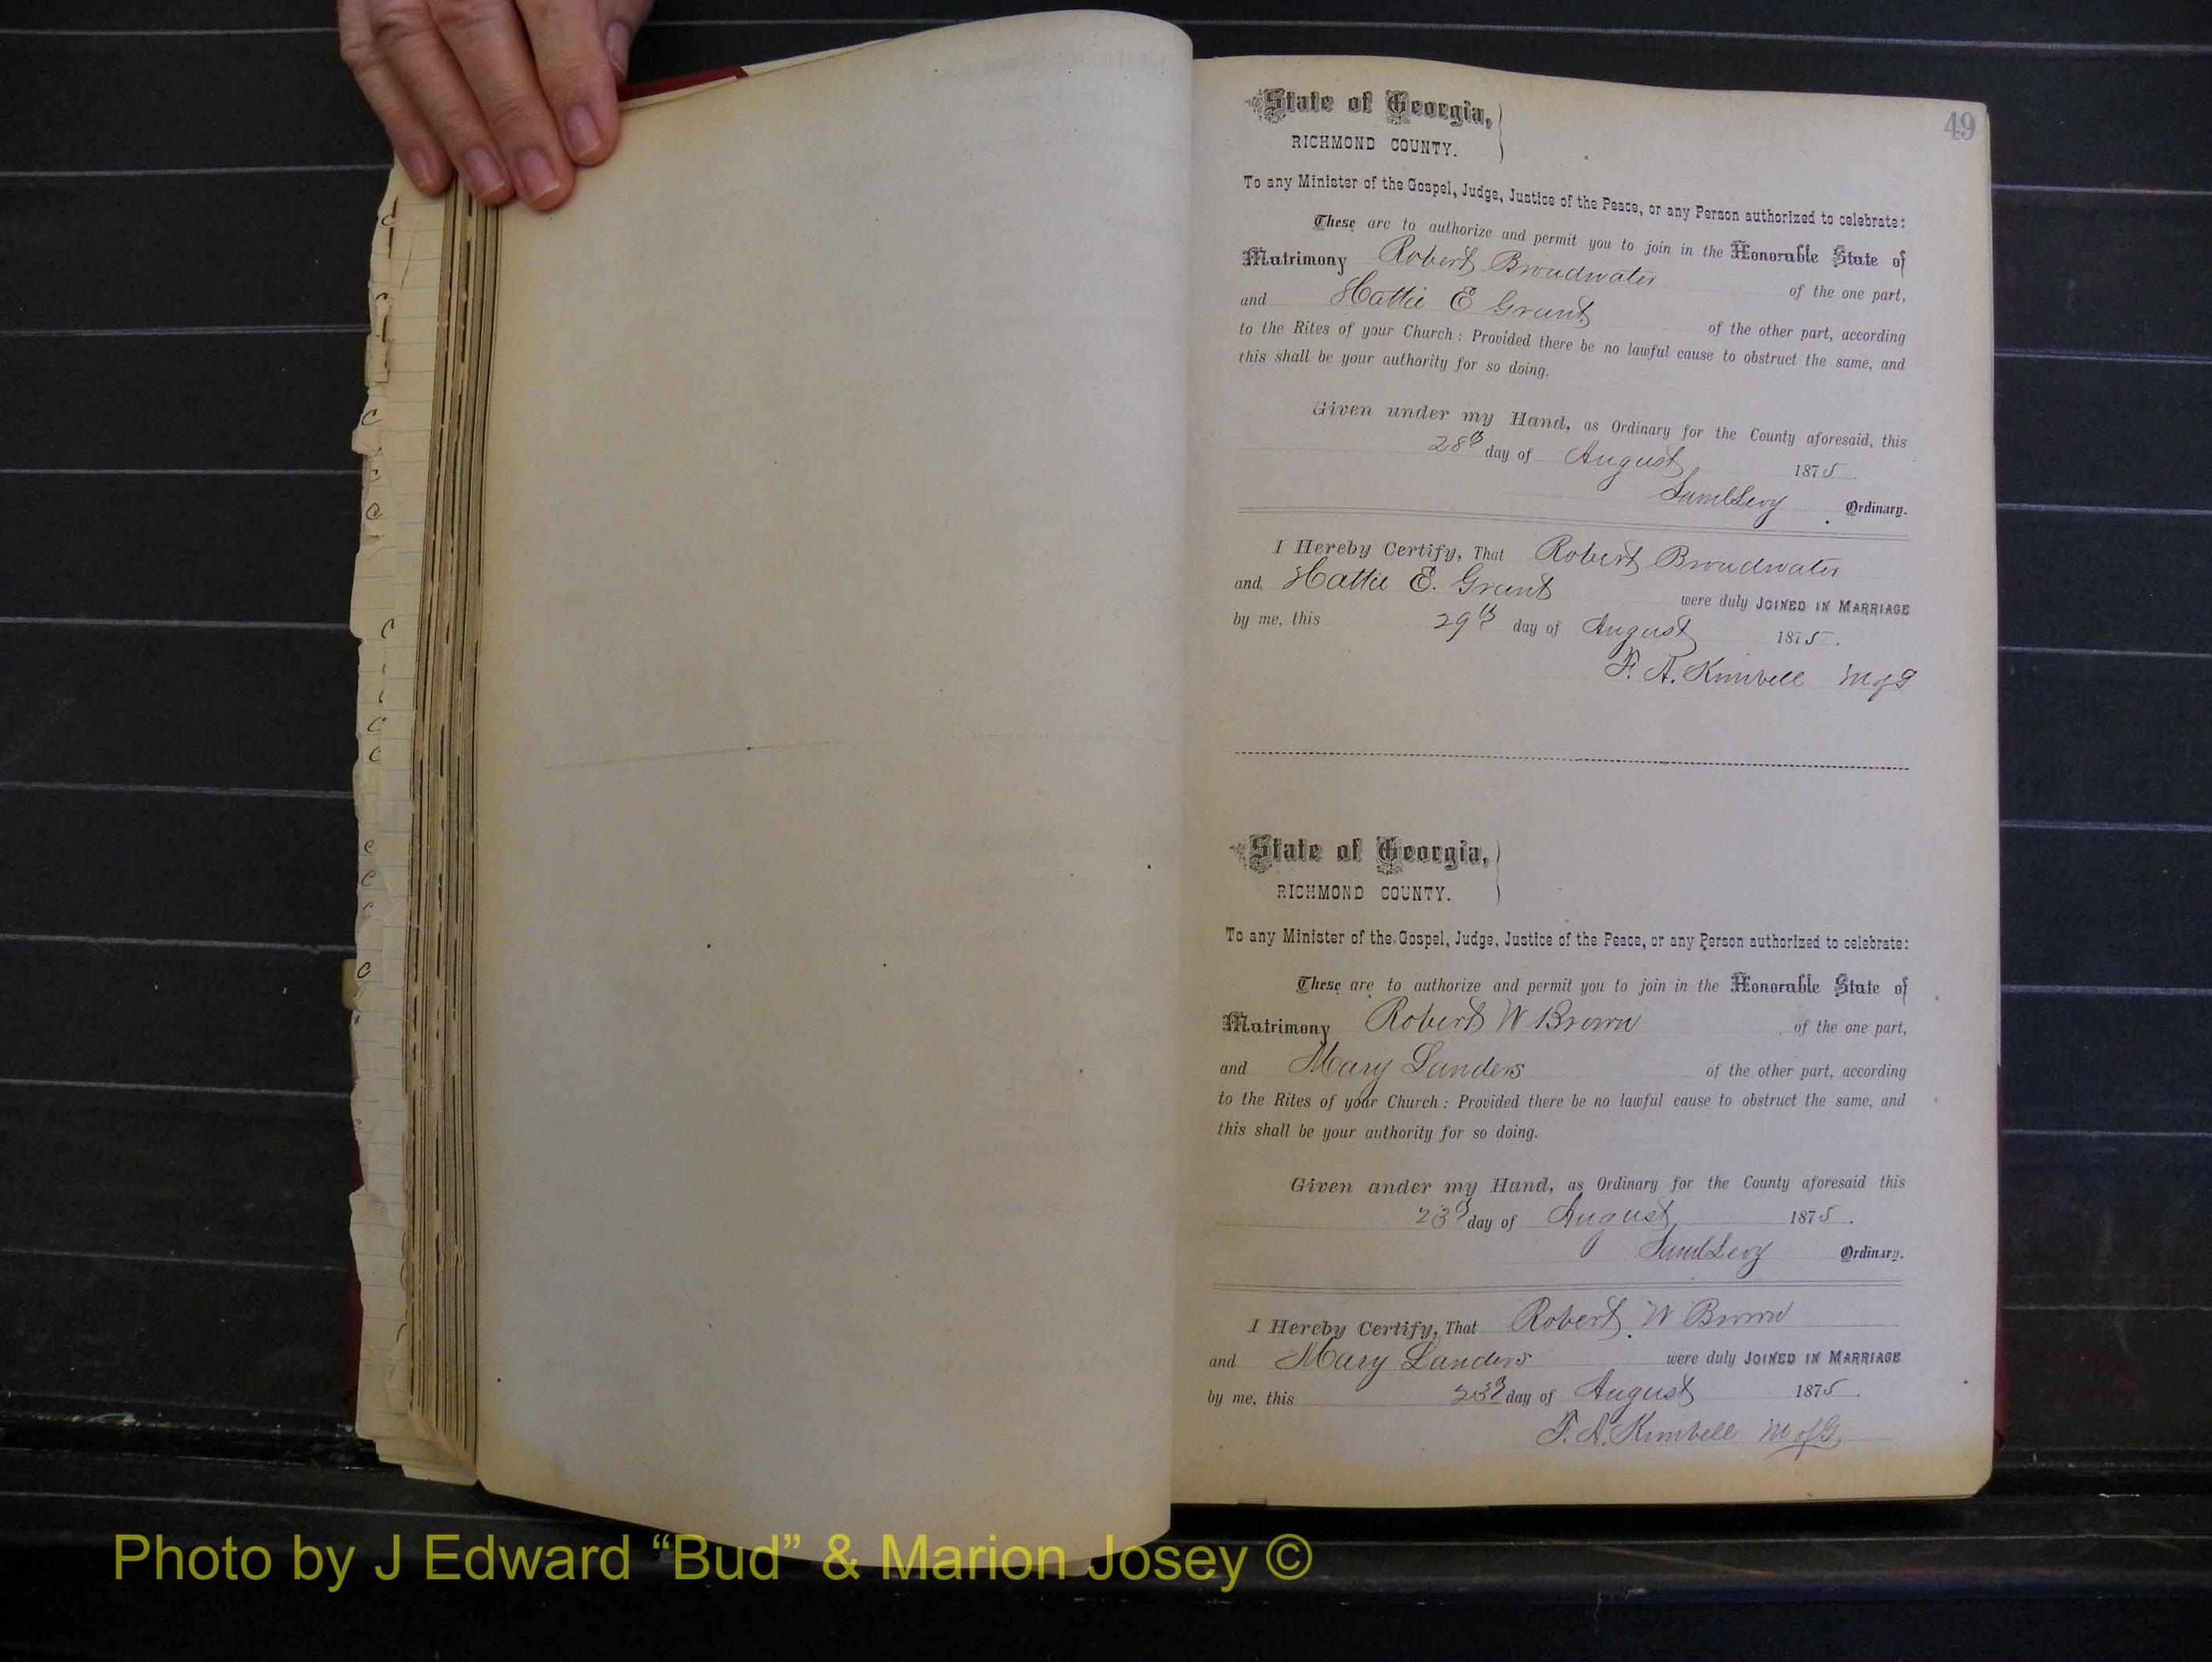 49
State of Georgia,
RICHMOND COUNTY.
To any Minister of the Gospel, Judge, Justice of the Peace, or any Person authorized to celebrate:
These are to authorize and permit you to join in the Honorable State of
Matrimony Robert Broadwater of the one part,
and Hattie E Grant of the other part, according
to the Rites of your Church: Provided there be no lawful cause to obstruct the same, and
this shall be your authority for so doing.
Given under my Hand, as Ordinary for the County aforesaid, this
28th day of August 1875
Saml Levy Ordinary.
I Hereby Certify, That Robert Broadwater
and Hattie E. Grant were duly JOINED IN MARRIAGE
by me, this 29th day of August 1875.
F. A. Kimbell M of G
State of Georgia,
RICHMOND COUNTY.
To any Minister of the Gospel, Judge, Justice of the Peace, or any Person authorized to celebrate:
These are to authorize and permit you to join in the Honorable State of
Matrimony Robert W Brown of the one part,
and Mary Landers of the other part, according
to the Rites of your Church: Provided there be no lawful cause to obstruct the same, and
this shall be your authority for so doing.
Given under my Hand, as Ordinary for the County aforesaid this
23d day of August 1875.
Saml Levy Ordinary.
I Hereby Certify, That Robert W Brown
and Mary Landers were duly JOINED IN MARRIAGE
by me, this 23d day of August 1875.
F. A. Kimbell M of G
Photo by J Edward “Bud” & Marion Josey ©